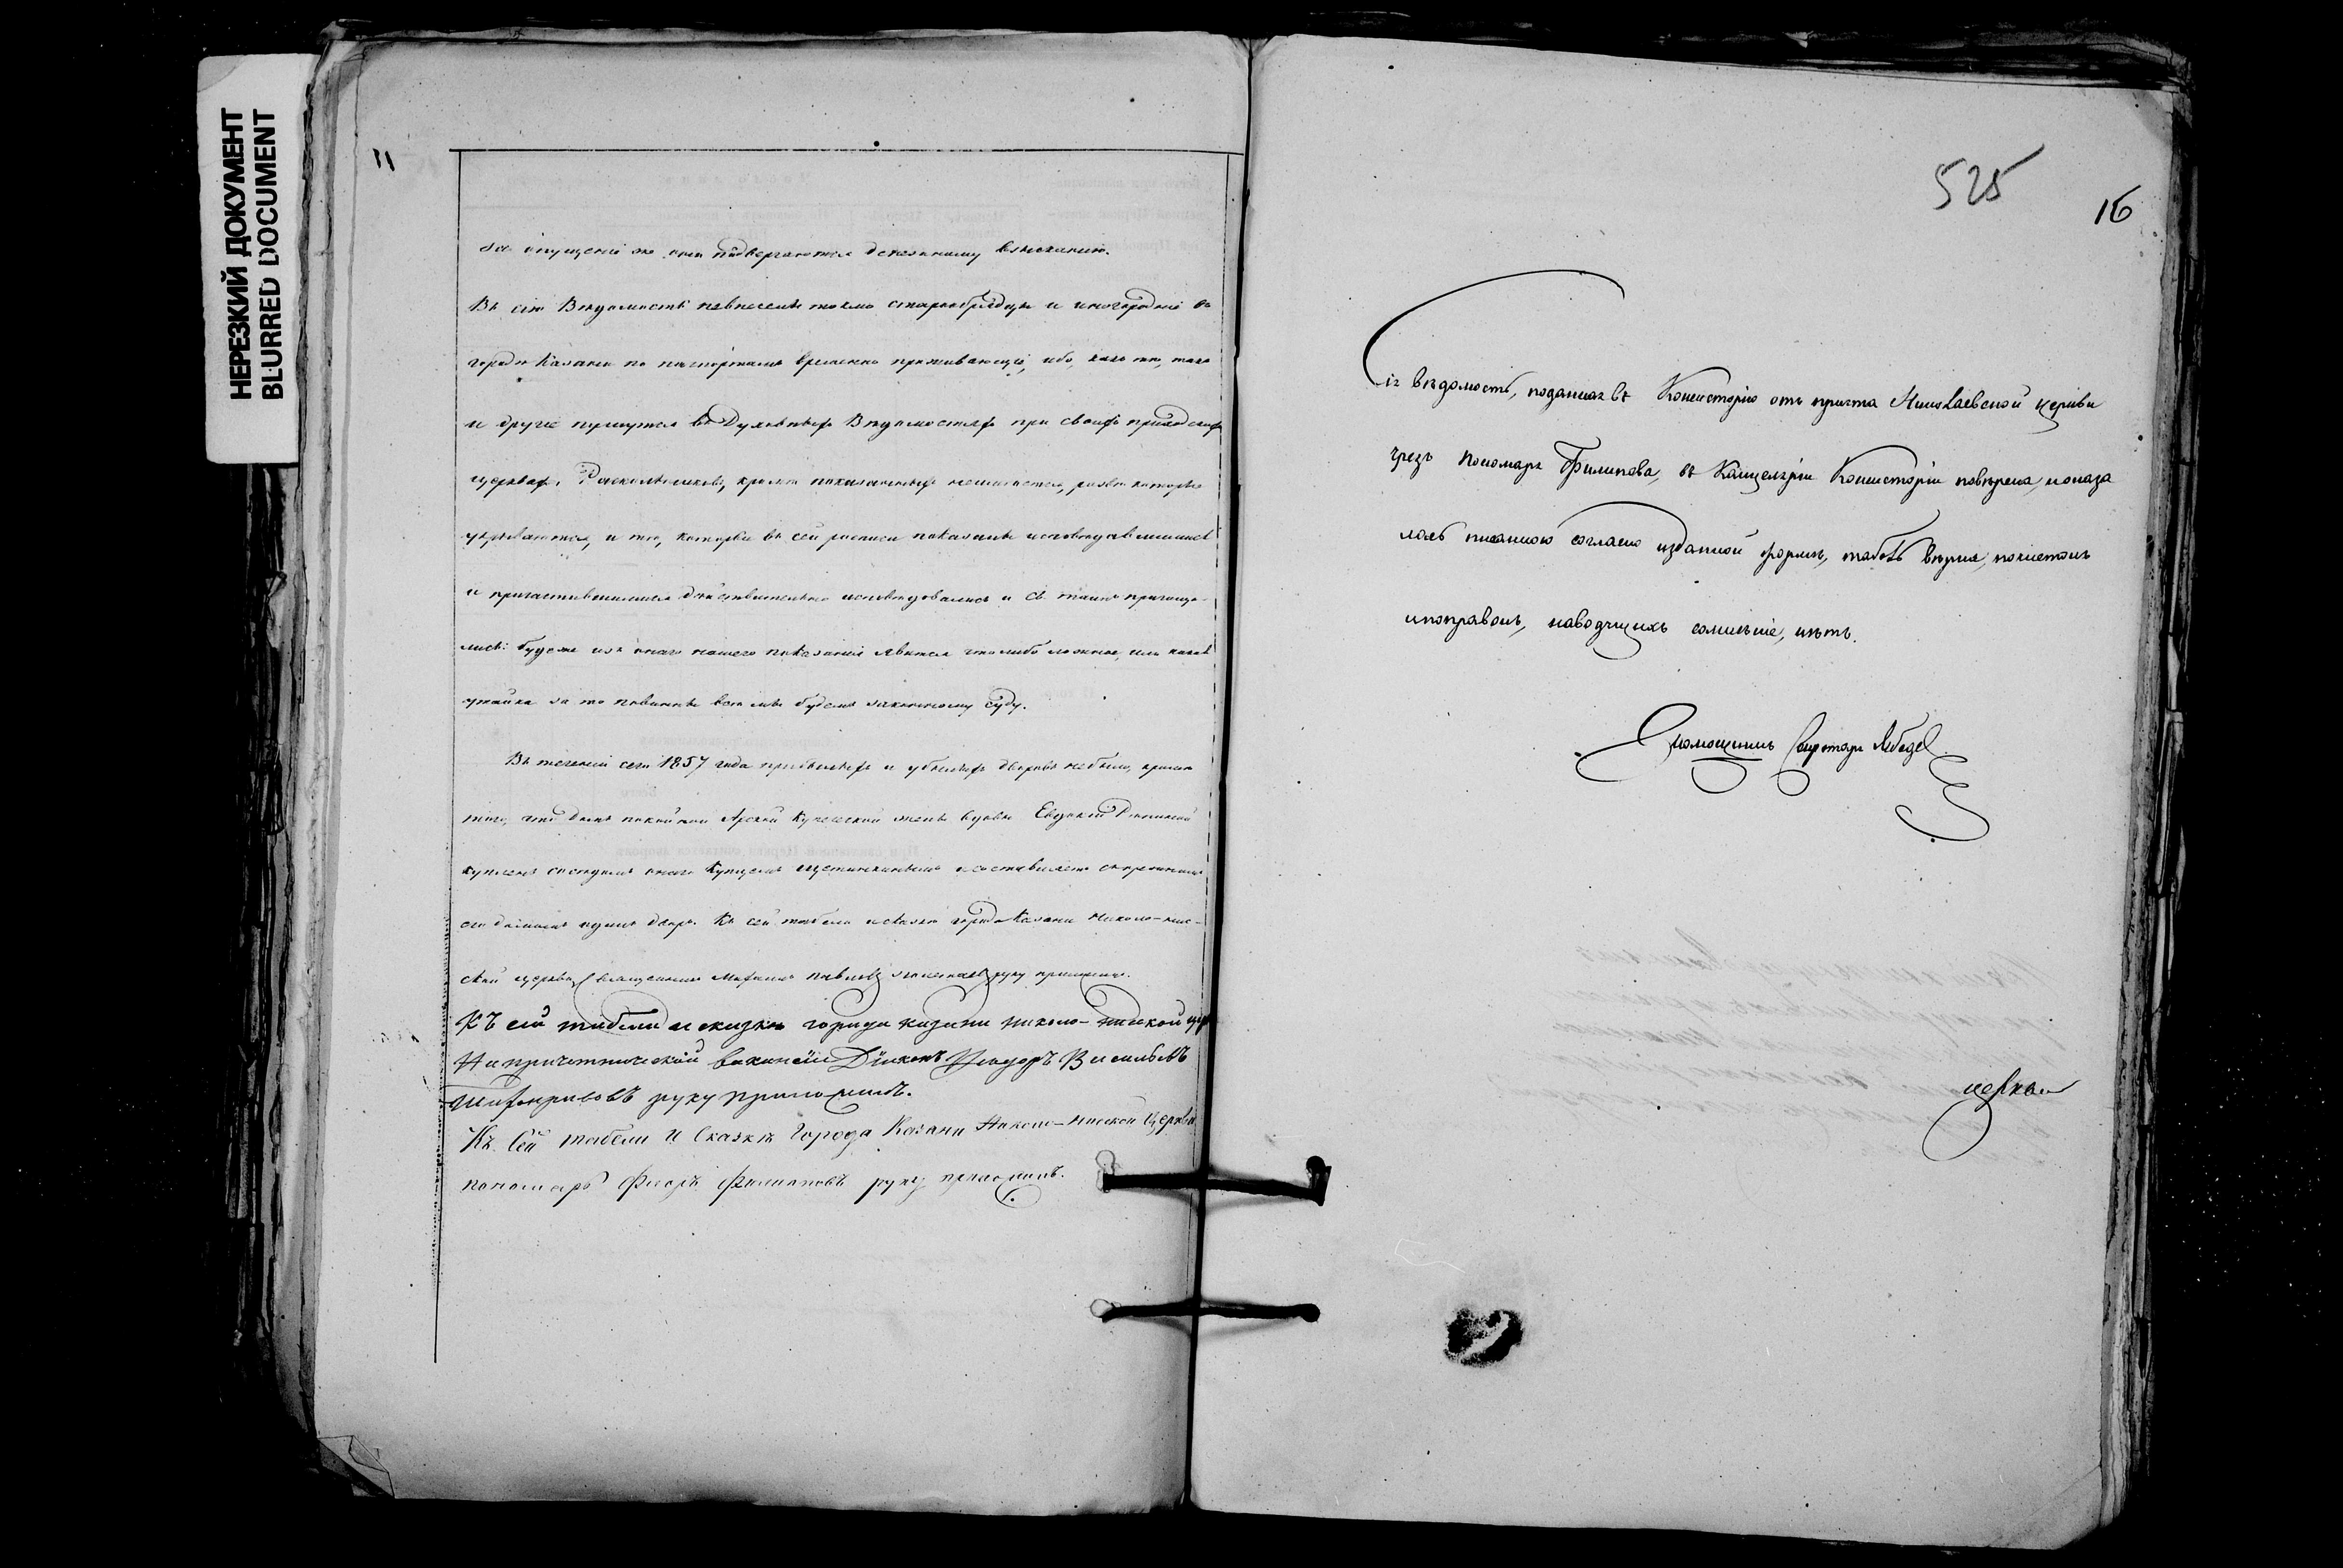 НЕРЕЗКИЙ ДОКУМЕНТ
BLURRED DOCUMENT
11
за опущенiе же сего подвергаются денежному взысканiю.
Въ сiю Вѣдомость невнесены токмо старообрядцы и иногороднiе въ
городѣ Казани по паспортамъ временно проживающiе, ибо, какъ тѣ, такъ
и другiе пишутся въ Духовныхъ Вѣдомостяхъ при своихъ приходскихъ
церквахъ. Раскольниковъ, кромѣ показанныхъ неимѣется, развѣ которые
укрываются, и тѣ, которые въ сей росписи показаны исповѣдавшимися
и причастившимися дѣйствительно исповѣдовались и Св. таинъ прiоща-
лись: буде же изъ онаго нашего показанiя явится что либо ложное, или какая
утайка за то повинны всѣ мы будемъ законному суду.
Въ теченiи сего 1857 года прибылыхъ и убылыхъ дворовъ небыло, кромѣ
того, что домъ покойной Арской купеческой жены вдовы Евдокiи
купленъ сосѣдомъ онаго купцемъ и составляетъ
домомъ одинъ дворъ. Къ сей табели и сказкѣ города Казани Николо-Нис-
ской церкви Священникъ Михаилъ Павловъ руку приложилъ.
Къ сей табели и сказкѣ города казани николо-ниской цер
На причетнической вакансiи Дiаконъ Ѳеодоръ Васильевъ
руку приложилъ.
Къ Сей табели и Сказкѣ Города Казани Николо-Ниской Церкви
пономарь Филиповъ руку приложилъ.
525
16
Сiя вѣдомость, поданная въ Консисторiю отъ причта Николаевской церкви
чрезъ Пономаря Филипова, въ Канцелярiи Консисторiи повѣрена, и оказа
лась писанною согласно изданной формѣ, табель вѣрна, почистокъ
и поправокъ, наводящихъ сомнѣнiе, нѣтъ.
Помощникъ Секретаря Лебедев
церкви